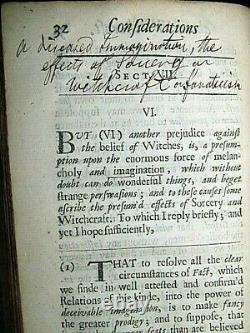 32 Considerations
A diseased Immagination, the
effects of Sorcery or
SECT. VI.
Witchcraft Confanaticism
VI.
BUT (VI) another prejudice against
the belief of Witches, is, a presum-
ption upon the enormous force of melan-
choly and imagination, which without
doubt can do wonderful things, and beget
strange perswasions; and to these causes some
ascribe the presum'd effects of Sorcery and
Witchcraft. To which I reply briefly; and
yet I hope sufficiently,
(1) THAT to resolve all the clear
circumstances of Fact, which
we find in well attested and confirm'd
Relations of this kind, into the power of
deceivable imagination, is to make fancy
the greater prodigy; and to suppose, that
it can do stranger feats than are believed